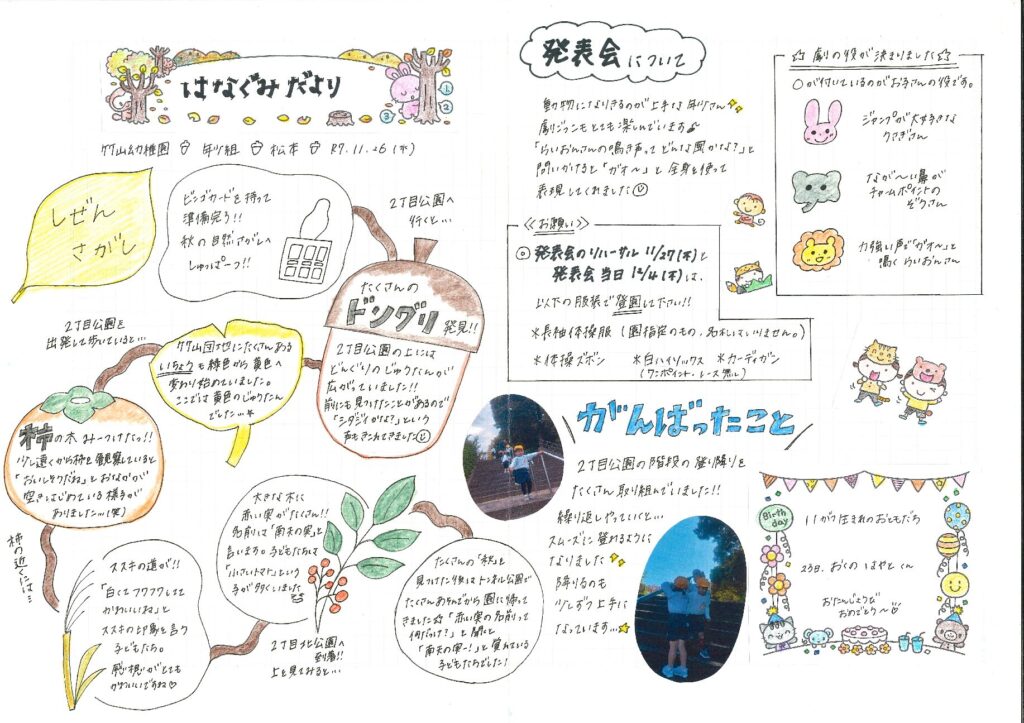 はなぐみだより
竹山幼稚園 年少組 松本 R7.11.26(水)
しぜん
さがし
ビンゴカードを持って
準備完了!!
秋の自然さがしへ
しゅっぱーつ!!
2丁目公園へ
行くと…
たくさんの
ドングリ
発見!!
2丁目公園の上には
どんぐりのじゅうたんが
広がっていました!!
前にも見つけたことがあるので
「シダジイかな?」という
声もきかれてきました
2丁目公園を
出発して歩いていると…
竹山団地にたくさんある
いちょうも緑色から黄色へ
変わり始めていました。
ここでは黄色のじゅうたん
でした…
柿の木みーつけたっ!!
少し遠くから柿を観察していると
「おいしそうだね」とおなかが
空きはじめている様子が
ありました…(笑)
柿の近くには…
ススキの道が!!
「白くてフワフワしてて
かわいいね」と
ススキの印象を言う
子どもたち。
感想がとても
かわいいですね♡
2丁目北公園へ
到着!!
上を見てみると…
大きな木に
赤い実がたくさん!!
名前は「南天の実」と
言います。子どもたちは
「小さいトマト」という
子が多くいました
たくさんの「秋」を
見つけた後はトンネル公園で
たくさんあそんでから園に帰って
きました☆「赤い実の名前って
何だっけ?」と聞くと
「南天の実ー!」と覚えている
子どもたちでした!
発表会について
動物になりきるのが上手な年少さん
劇ごっこもとても楽しんでいます♪
「らいおんさんの鳴き声ってどんな風かな?」と
問いかけると「ガオ〜」と全身を使って
表現してくれました
≪お願い≫
◎発表会のリハーサル 11/27(木)と
発表会当日 12/4(木)は、
以下の服装で登園して下さい!!
*長袖体操服(園指定のもの、名札はいりません。)
*体操ズボン *白ハイソックス *カーディガン
(ワンポイント・レース無し)
☆劇の役が決まりました☆
○が付いているのがお子さんの役です。
ジャンプが大好きな
うさぎさん
なが〜い鼻が
チャームポイントの
ぞうさん
力強い声で「ガオ〜」と
鳴くらいおんさん
がんばったこと
2丁目公園の階段の登り降りを
たくさん取り組んでいました!!
繰り返しやっていくと…
スムーズに登れるように
なりました
降りるのも
少しずつ上手に
なっています…
Birth
day
11がつ生まれのおともだち
23日.おくの はやと くん
おたんじょうび
おめでとう〜